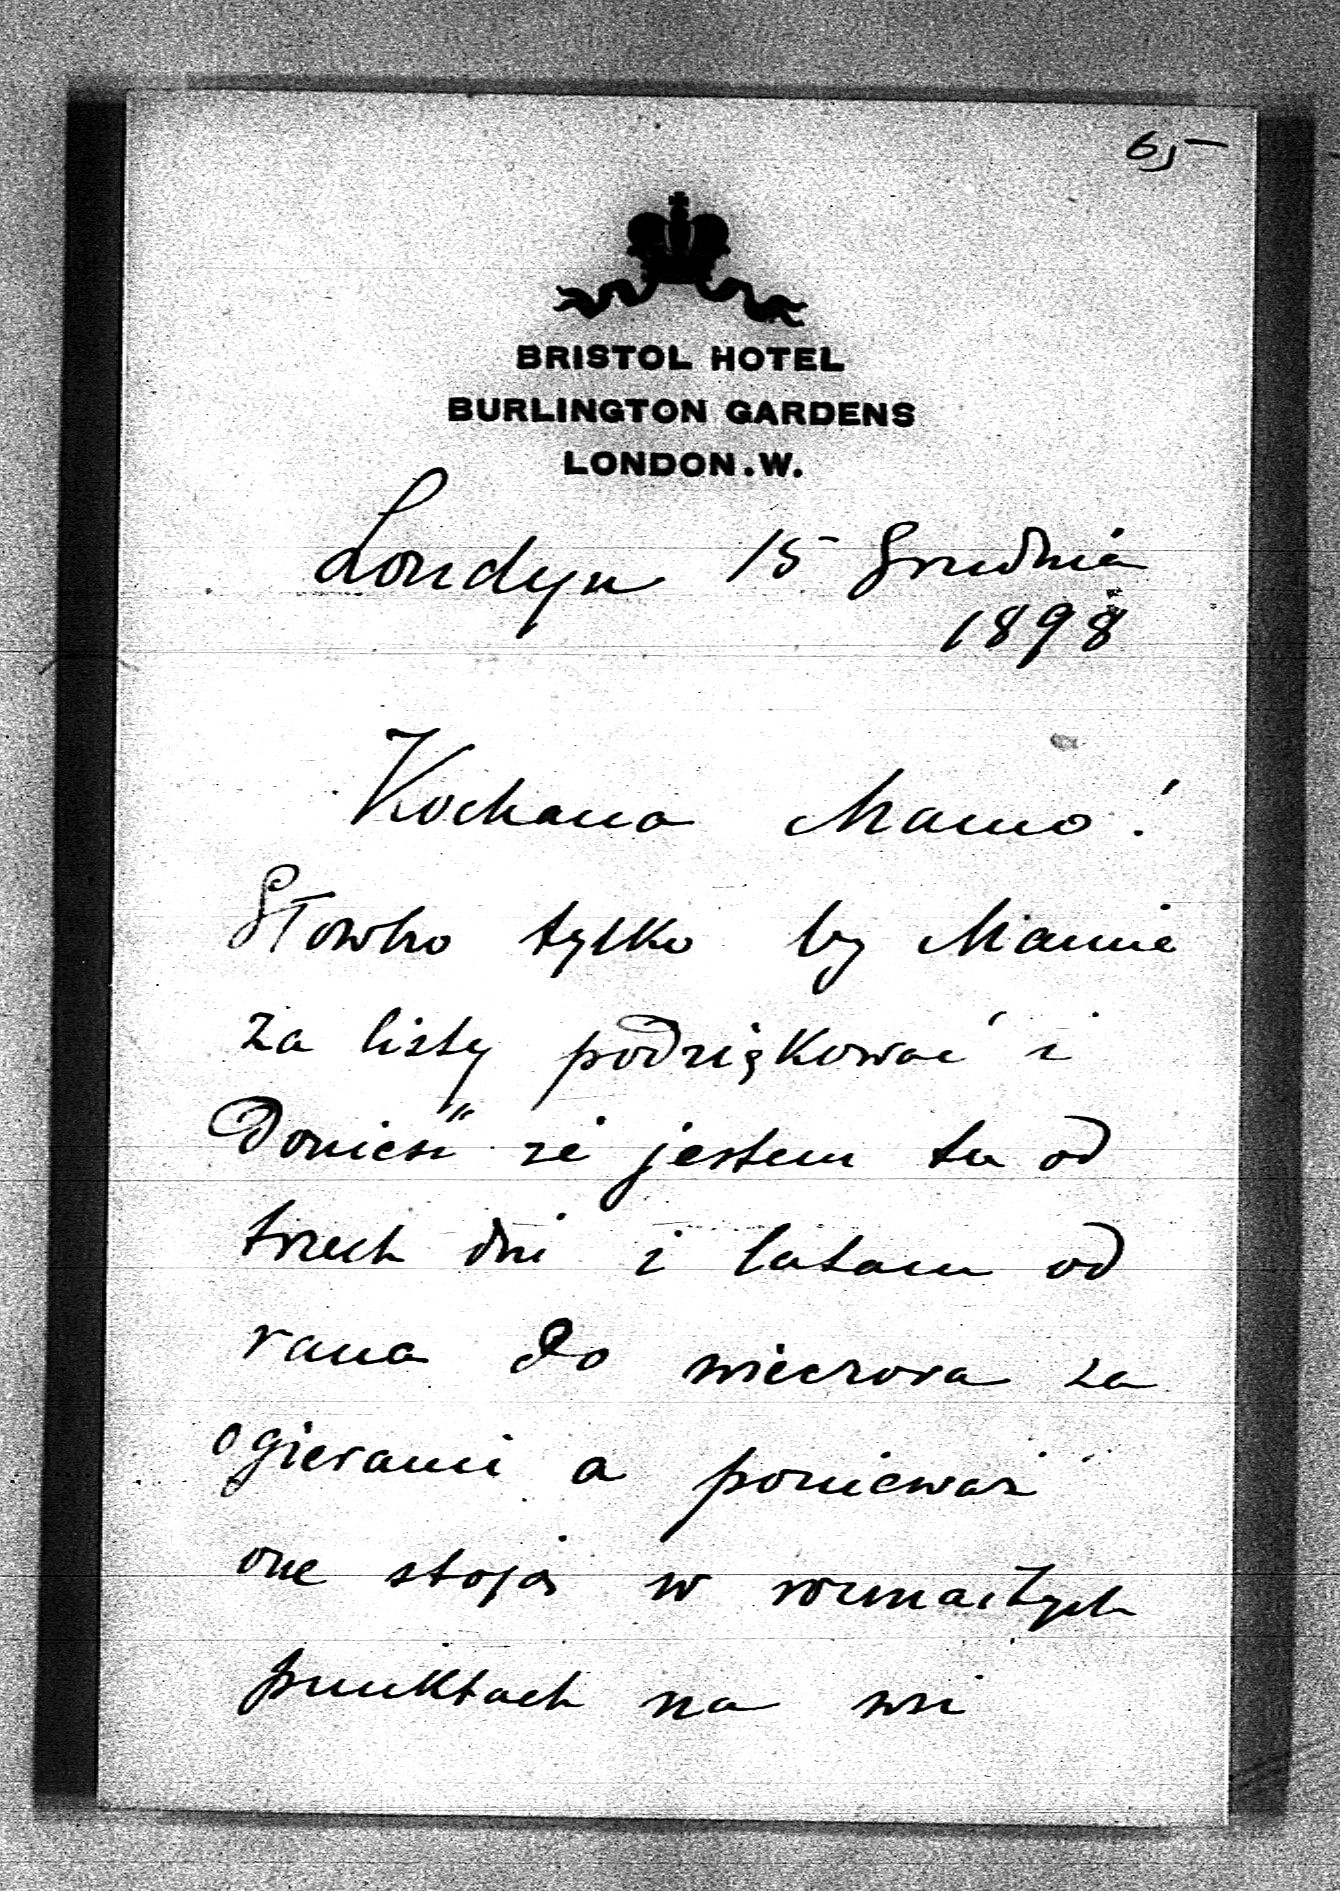 65-
BRISTOL HOTEL
BURLINGTON GARDENS
LONDON.W.
Londyn 15 Grudnia
1898
Kochana Mamo!
Słówko tylko by Mamie
za listy podziękować i
donieść że jestem tu od
trzech dni i latam od
rana do wieczora za
ogierami a ponieważ
one stoją w rozmaitych
punktach na wsi